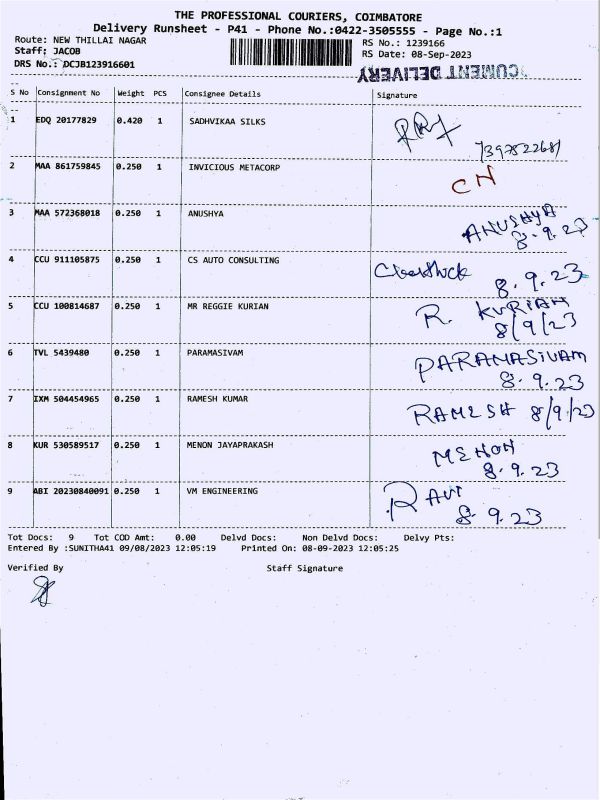 THE PROFESSIONAL COURIERS, COIMBATORE
Delivery Runsheet - P41 - Phone No.:0422-3505555 - Page No.:1
Route: NEW THILLAI NAGAR
RS No.: 1239166
Staff: JACOB
RS Date: 08-Sep-2023
DRS No.: DCJB123916601
DOCUMENT DELIVERY
S No Consignment No Weight PCS Consignee Details Signature
1 EDQ 20177829 0.420 1 SADHVIKAA SILKS
2 MAA 861759845 0.250 1 INVICIOUS METACORP CN
3 MAA 572368018 0.250 1 ANUSHYA ANUSHYA
8.9.23
4 CCU 911105875 0.250 1 CS AUTO CONSULTING 8.9.23
5 CCU 100814687 0.250 1 MR REGGIE KURIAN R. KURIAN
8/9/23
6 TVL 5439480 0.250 1 PARAMASIVAM PARAMASIVAM
8.9.23
7 IXM 504454965 0.250 1 RAMESH KUMAR RAMESH 8/9/23
8 KUR 530589517 0.250 1 MENON JAYAPRAKASH MENON
8.9.23
9 ABI 20230840091 0.250 1 VM ENGINEERING RAVI
8.9.23
Tot Docs: 9 Tot COD Amt: 0.00 Delvd Docs: Non Delvd Docs: Delvy Pts:
Entered By :SUNITHA41 09/08/2023 12:05:19 Printed On: 08-09-2023 12:05:25
Verified By Staff Signature